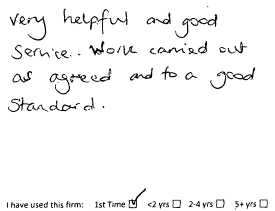 very helpful and good
service.. Work carried out
as agreed and to a good
standard.
I have used this firm: 1st Time ☑ <2 yrs ☐ 2-4 yrs ☐ 5+ yrs ☐